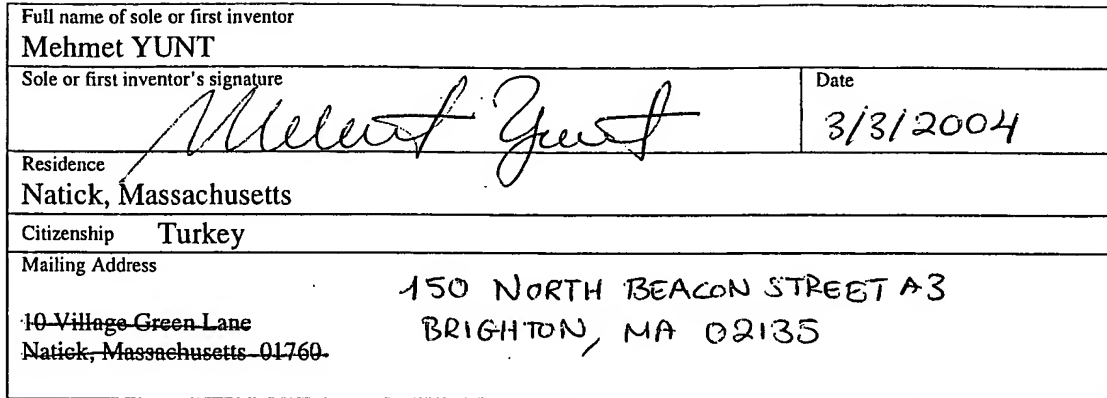 Full name of sole or first inventor
Mehmet YUNT
Sole or first inventor's signature
Mehmet Yunt
Date
3/3/2004
Residence
Natick, Massachusetts
Citizenship Turkey
Mailing Address
150 NORTH BEACON STREET A3
BRIGHTON, MA 02135
10 Village Green Lane
Natick, Massachusetts 01760